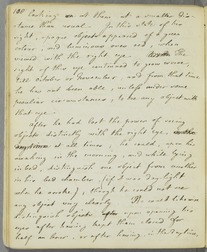 100 looking at them at a smaller dis-
tance than usual. In this state of his
sight, opaque objects appeared of a green
colour, and luminous ones red, when
viewed with the right eye. The
sight of this eye continued to grow worse,
till October or December, and from that time
he has not been able, unless under some
peculiar circumstances, to see any object with
that eye.
After he had lost the power of seeing
objects distinctly with the right eye,
at all times, he could, upon his
awaking in the morning, and while lying
in bed, distinguish one object from another
in his bed chamber, (if it was daylight
when he awoke), though he could not see
any object very clearly. He could
distinguish objects after upon opening his
eyes after having kept them closed for
half an hour, or after having in the daytime,